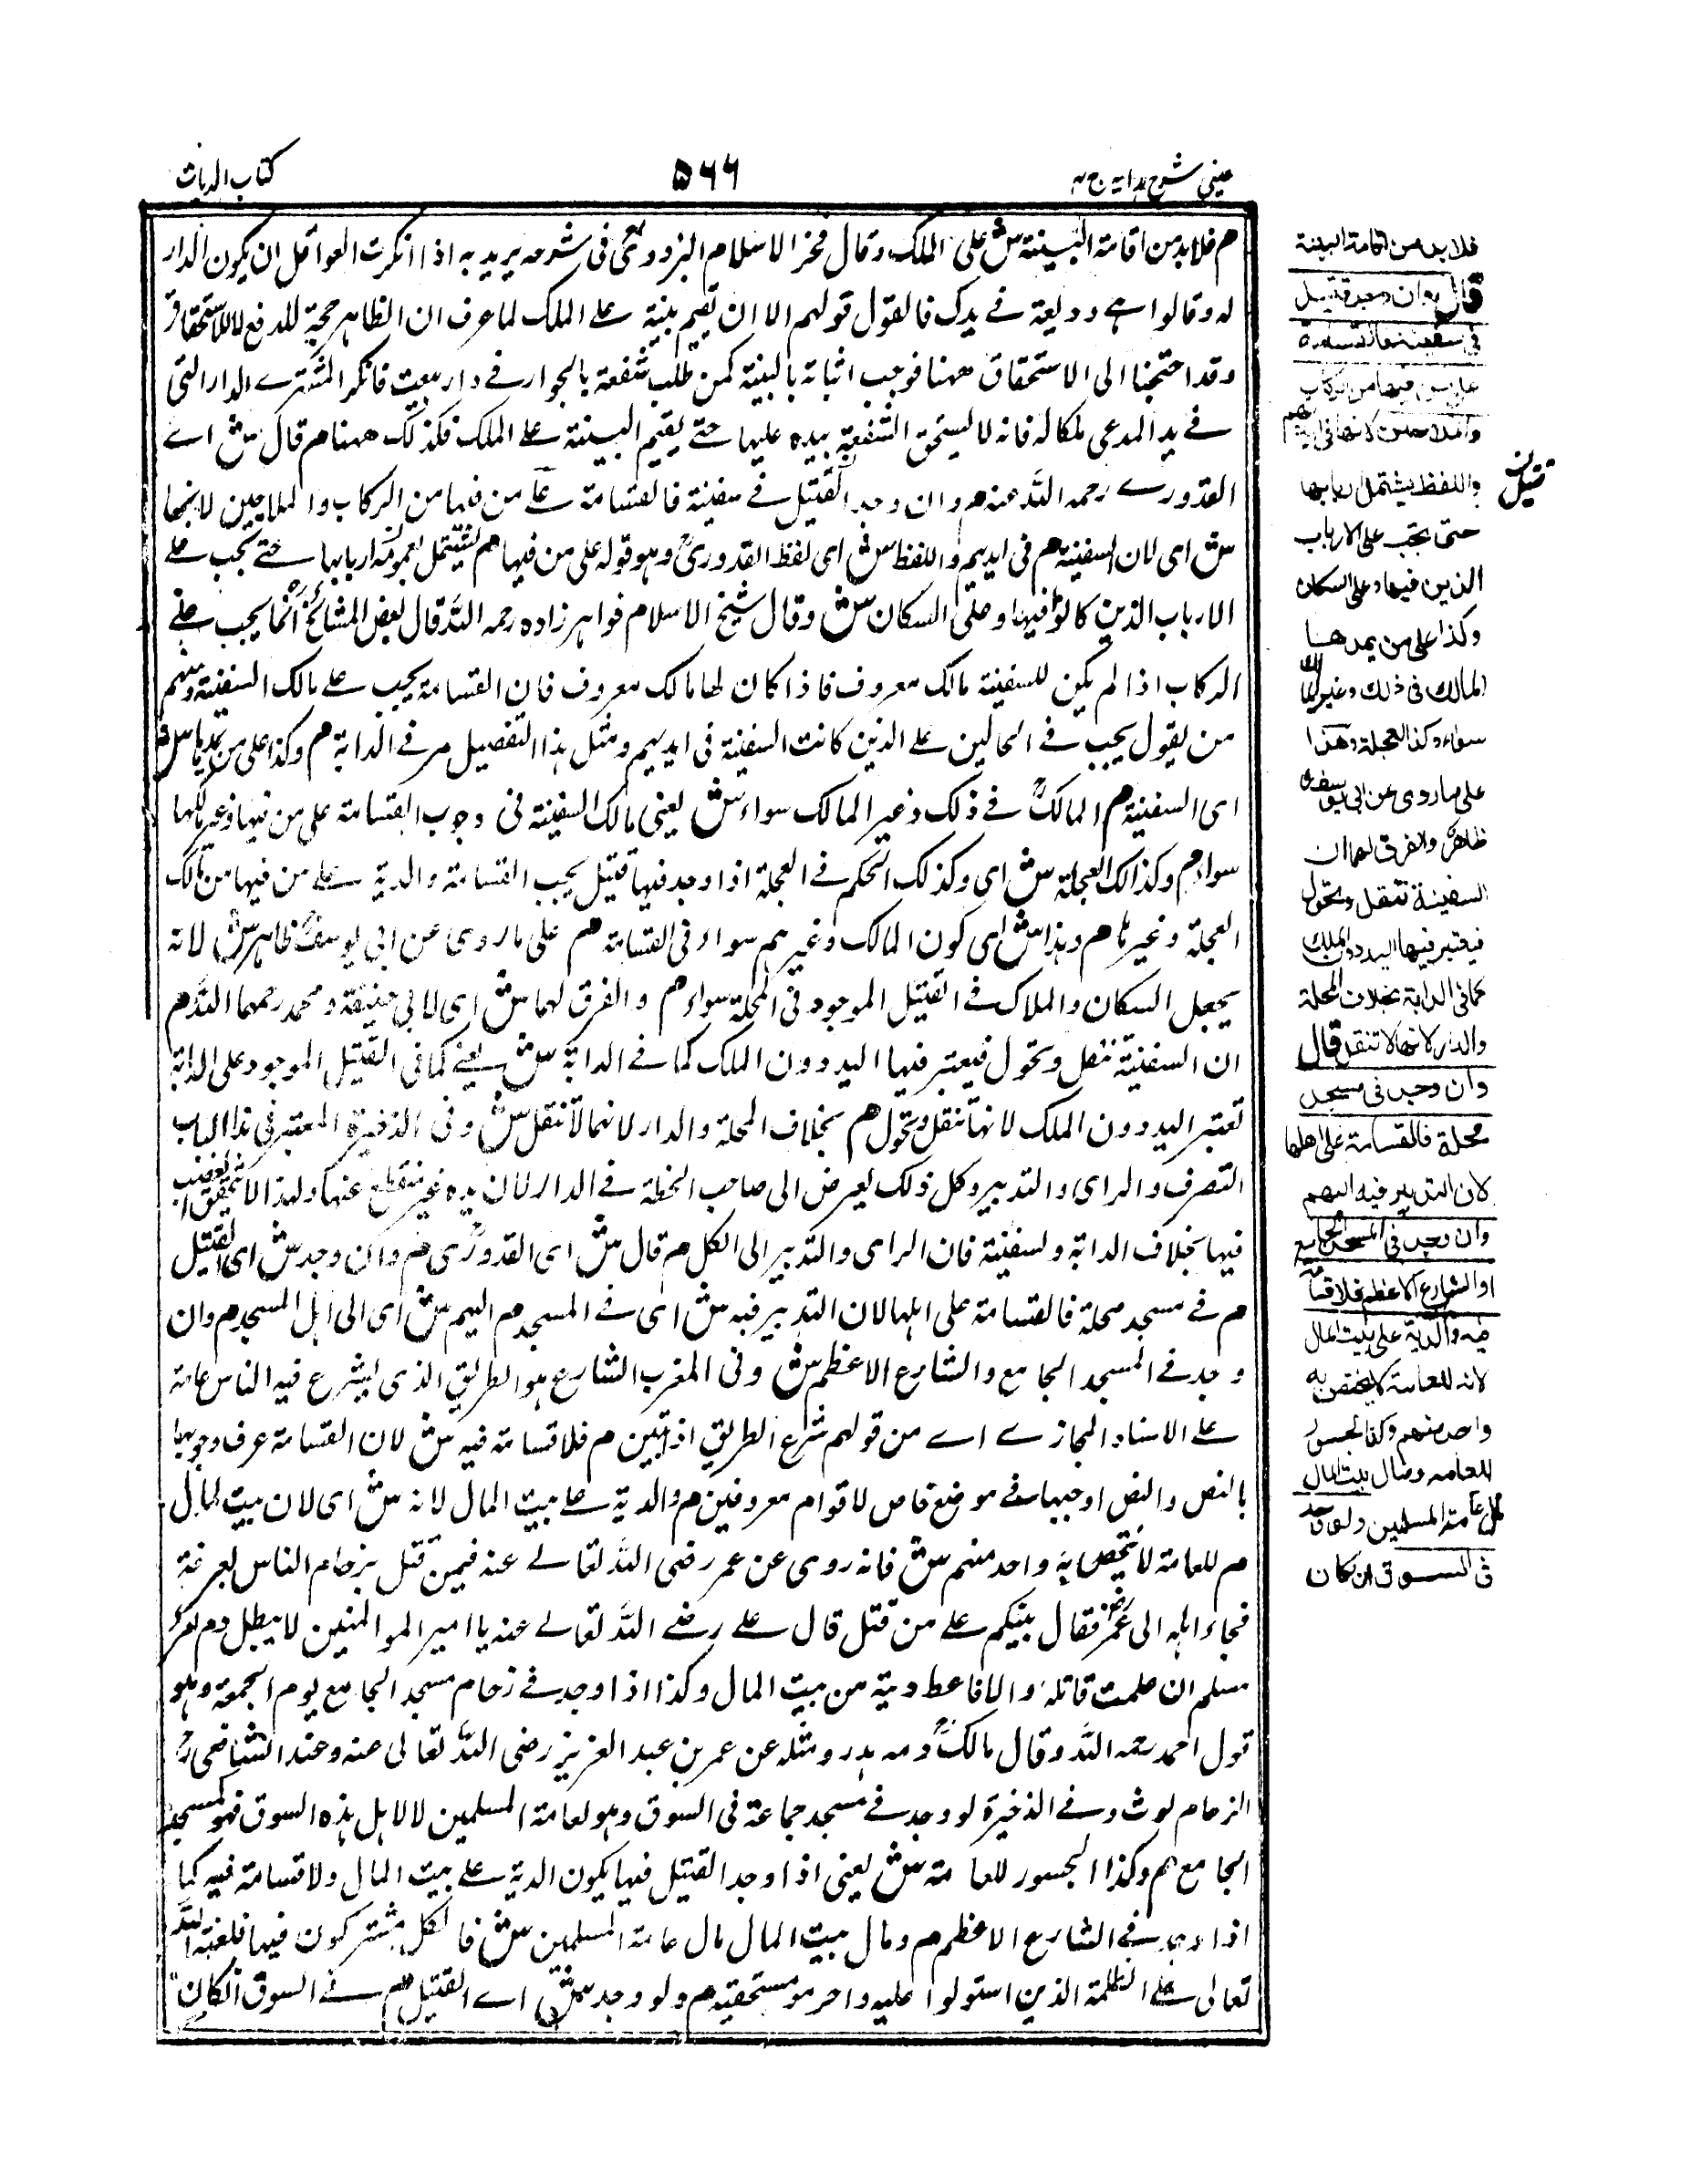 عيني شرح هدايه ج ٤
٥٦٦
كتاب الديات
م فلا بد من اقامة البينة ش على الملك وقال فخر الاسلام البزدوي في شرحه يريد به اذا انكرت العواقل ان يكون الدار
له وقالوا هي وديعة في يدك فالقول قولهم الا ان يقيم بينة على الملك لما عرف ان الظاهر حجة للدفع لا للاستحقاق
وقد احتجنا الى الاستحقاق ههنا فوجب اثباته بالبينة كمن طلب شفعة بالجوار في دار بيعت فانكر المشترى الدار التي
في يد المدعى ملكا له فانه لا يستحق الشفعة بيده عليها حتى يقيم البينة على الملك فكذلك ههنا م قال ش اى
القدوري رحمه الله عنه م وان وجد القتيل في سفينة فالقسامة على من فيها من الركاب والملاحين لانها
ش اى لان السفينة م في ايديهم واللفظ ش اى لفظ القدوري وهو قوله على من فيها م يشتمل بعمومه اربابها حتى تجب على
الارباب الذين كانوا فيها وعلى السكان ش وقال شيخ الاسلام خواهر زاده رحمه الله قال بعض المشائخ انما يجب على
الركاب اذا لم يكن للسفينة مالك معروف فاذا كان لها مالك معروف فان القسامة يجب على مالك السفينة ومنهم
من يقول يجب في الحالين على الذين كانت السفينة في ايديهم ومثل هذا التفصيل مر في الدابة م وكذا على من يمدها ش
اى السفينة م المالك في ذلك وغير المالك سواء ش يعني مالك السفينة في وجوب القسامة على من فيها وغير مالكها
سواء م وكذلك العجلة ش اى وكذلك الحكم في العجلة اذا وجد فيها قتيل يجب القسامة والدية على من فيها من مالك
العجلة وغيرها م وهذا ش اى كون المالك وغيرهم سواء في القسامة م على ما روى عن ابي يوسف ظاهر ش لانه
يجعل السكان والملاك في القتيل الموجود في المحلة سواء م والفرق لهما ش اى لابي حنيفة ومحمد رحمهما الله م
ان السفينة تنقل وتحول فيعتبر فيها اليد دون الملك كما في الدابة ش يعني كما في القتيل الموجود على الدابة
تعتبر اليد دون الملك لانها تنقل وتحول م بخلاف المحلة والدار لانها لا تنقل ش وفي الذخيرة المعتبر في هذا الباب
التصرف والراى والتدبير وكل ذلك يعرض الى صاحب الخطة في الدار لان يده غير منقطع عنها ولهذا لا يتحقق الغصب
فيها بخلاف الدابة والسفينة فان الراى والتدبير الى الكل م قال ش اى القدوري م وان وجد ش اى القتيل
م في مسجد محلة فالقسامة على اهلها لان التدبير فيه ش اى في المسجد م اليهم ش اى الى اهل المسجد م وان
وجد في المسجد الجامع والشارع الاعظم ش وفي المغرب الشارع هو الطريق الذي يشرع فيه الناس عامة
على الاسناد المجازى اى من قولهم شرع الطريق اذا تبين م فلا قسامة فيه ش لان القسامة عرف وجوبها
بالنص والنص اوجبها في موضع خاص لاقوام معروفين م والدية على بيت المال لانه ش اى لان بيت المال
م للعامة لا يختص به واحد منهم ش فانه روى عن عمر رضى الله تعالى عنه فيمن قتل بزحام الناس بعرفة
فجاء اهله الى عمر فقال بينتكم على من قتل قال على رضى الله تعالى عنه يا امير المومنين لا يبطل دم امرء
مسلم ان علمت قاتله والا فاعط ديته من بيت المال وكذا اذا وجد في زحام مسجد الجامع يوم الجمعة وهو
قول احمد رحمه الله وقال مالك دمه هدر ومثله عن عمر بن عبد العزيز رضى الله تعالى عنه وعند الشافعى
الزحام لوث وفي الذخيرة لو وجد في مسجد جماعة في السوق وهو لعامة المسلمين لا لاهل هذه السوق فهو كمسجد
الجامع م وكذا الجسور للعامة ش يعني اذا وجد القتيل فيها يكون الدية على بيت المال ولا قسامة فيه كما
اذا وجد في الشارع الاعظم م ومال بيت المال مال عامة المسلمين ش فالكل مشتركون فيها فلعنة الله
تعالى على الظلمة الذين استولوا عليه واحرموا مستحقيه م ولو وجد ش اى القتيل م في السوق ان كان
فلا بد من اقامة البينة
قال وان وجد قتيل
في سفينة فالقسامة
على من فيها من الركاب
والملاحين لانها في ايديهم
واللفظ يشتمل اربابها
حتى تجب على الارباب
الذين فيها وعلى السكان
وكذا على من يمدها
المالك في ذلك وغير المالك
سواء وكذا العجلة وهذا
على ما روى عن ابي يوسف
ظاهر والفرق لهما ان
السفينة تنقل وتحول
فيعتبر فيها اليد دون الملك
كما في الدابة بخلاف المحلة
والدار لانها لا تنقل قال
وان وجد في مسجد
محلة فالقسامة على اهلها
لان التدبير فيه اليهم
وان وجد في المسجد الجامع
او الشارع الاعظم فلا قسامة
فيه والدية على بيت المال
لانه للعامة لا يختص به
واحد منهم وكذا الجسور
للعامة ومال بيت المال
مال عامة المسلمين ولو وجد
في السوق ان كان